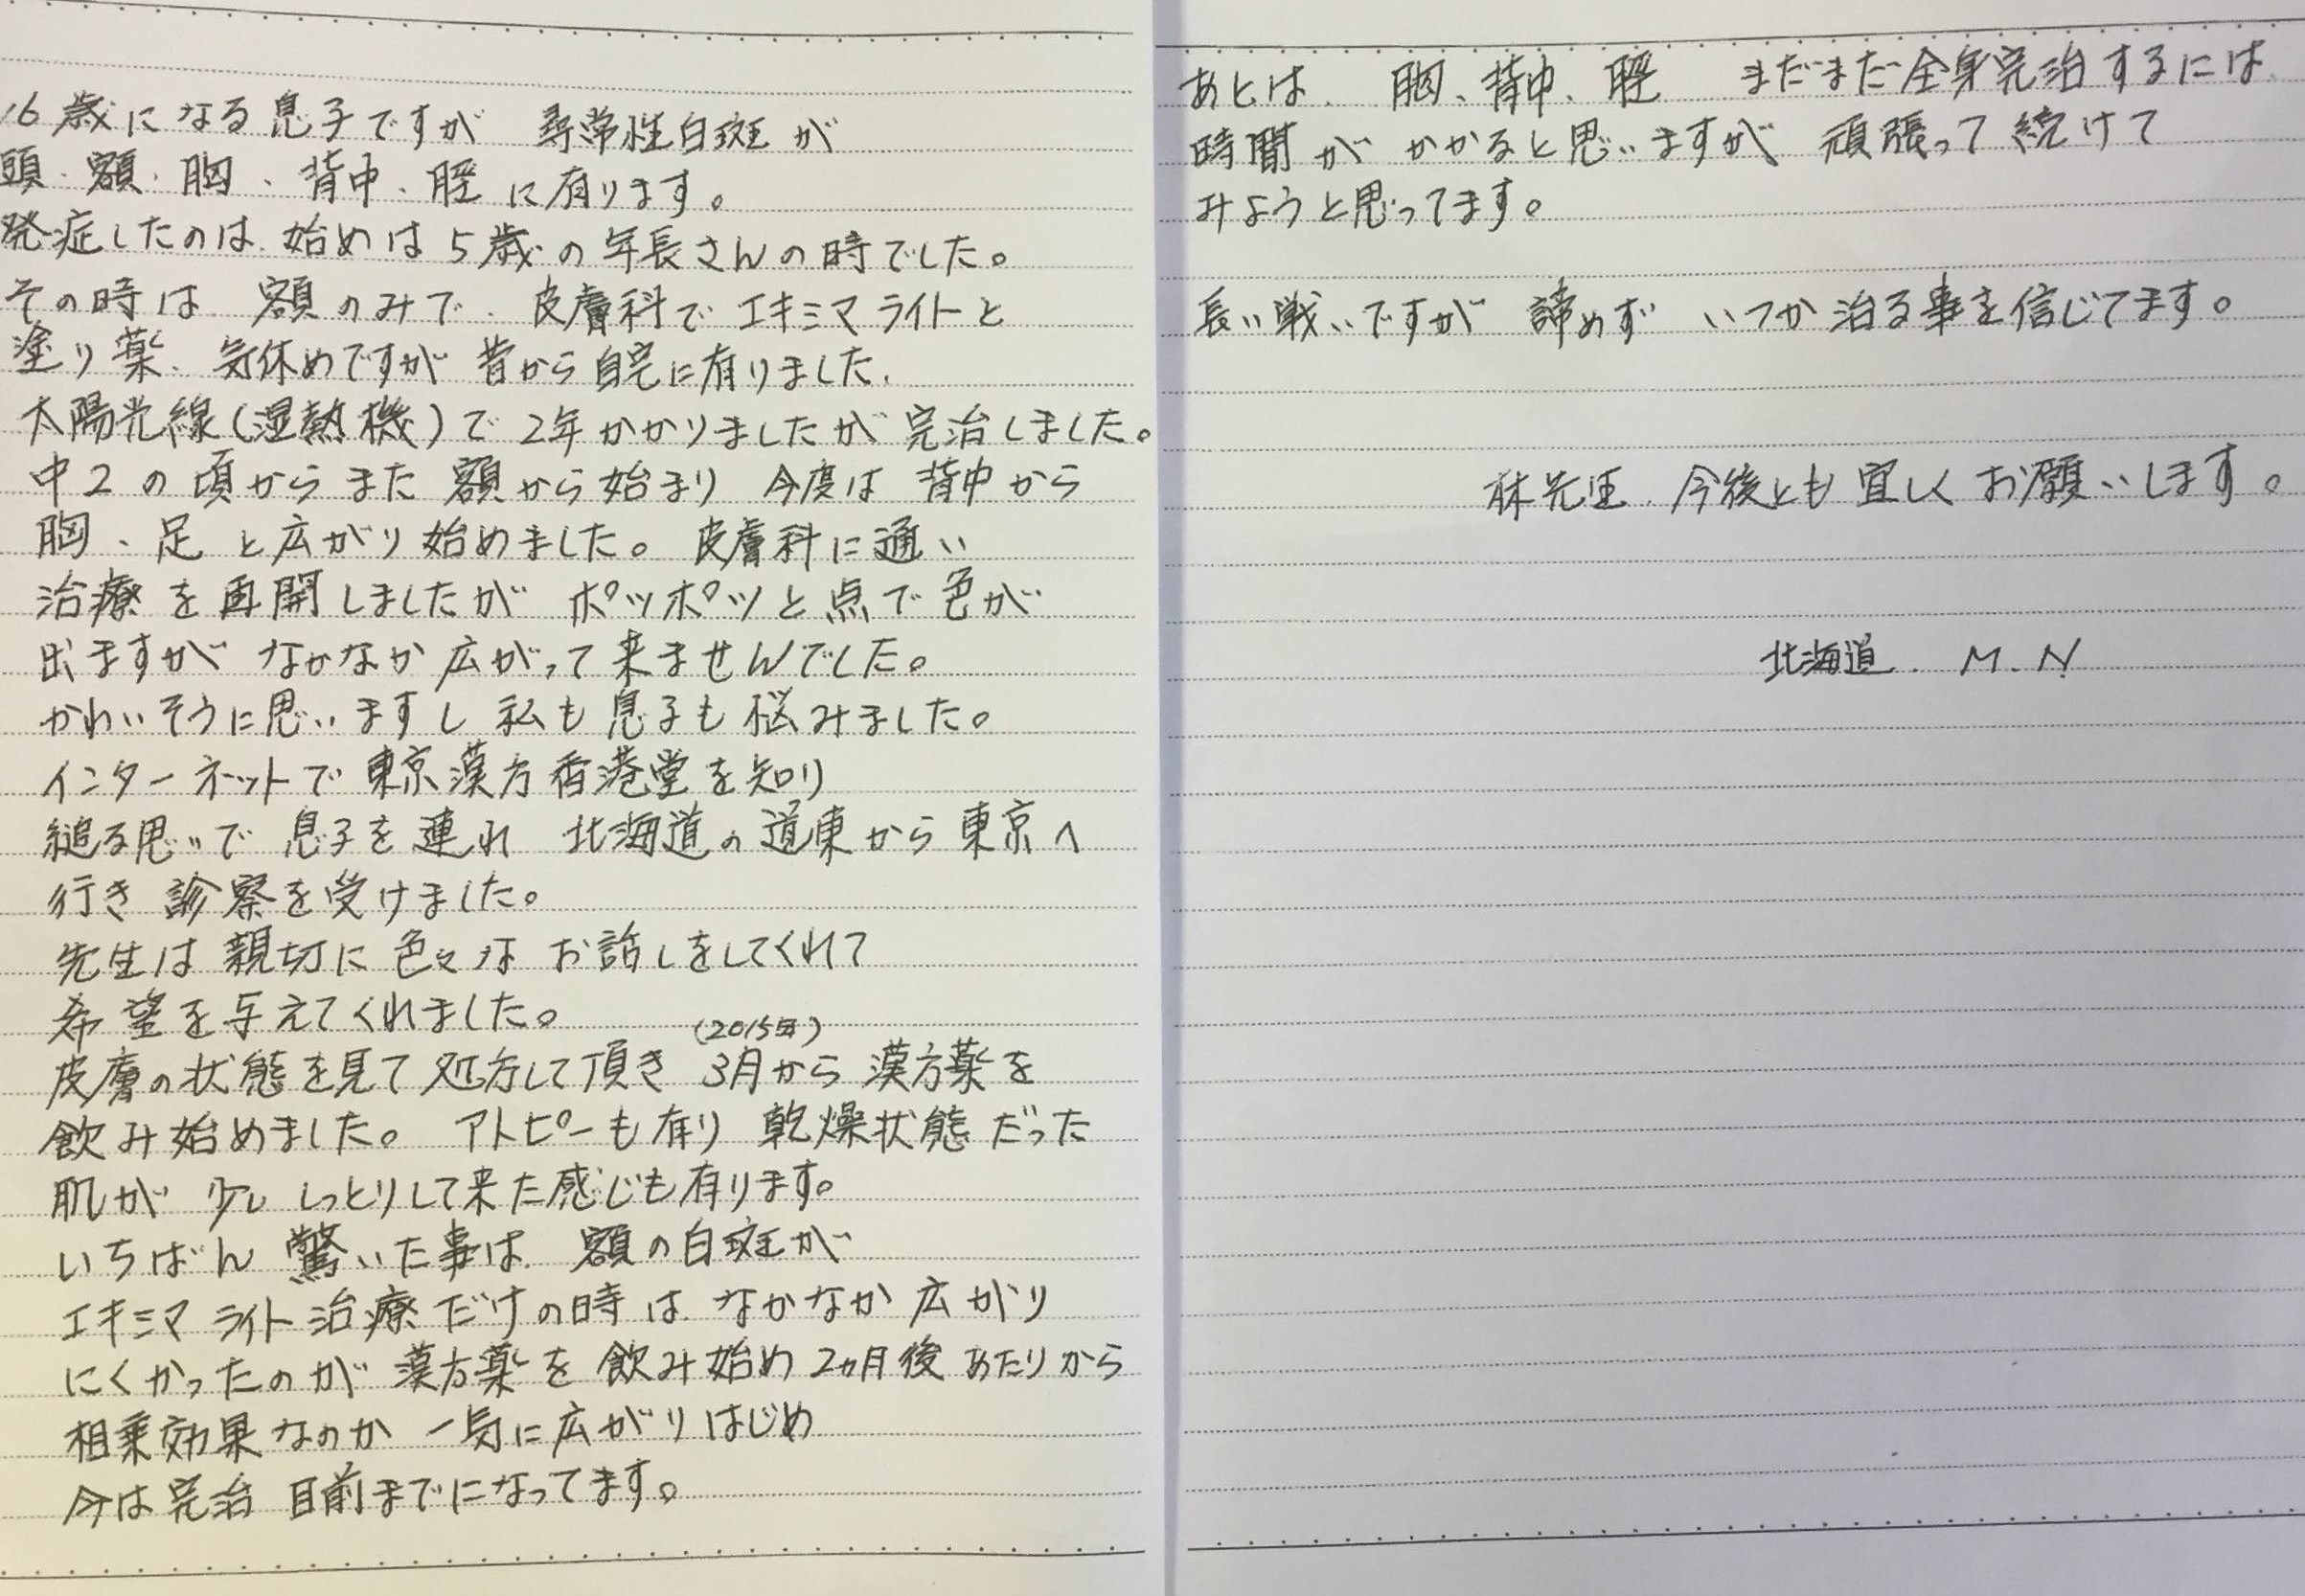 16歳になる息子ですが 尋常性白斑が
頭、額、胸、背中、脛に有ります。
発症したのは、始めは5歳の年長さんの時でした。
その時は 額のみで、皮膚科でエキシマライトと
塗り薬、気休めですが 昔から自宅に有りました、
太陽光線(湿熱機)で2年かかりましたが完治しました。
中2の頃からまた額から始まり 今度は背中から
胸、足と広がり始めました。皮膚科に通い
治療を再開しましたが ポツポツと点で色が
出ますが なかなか広がって来ませんでした。
かわいそうに思いますし 私も息子も悩みました。
インターネットで東京漢方香港堂を知り
縋る思いで 息子を連れ 北海道の道東から東京へ
行き診察を受けました。
先生は親切に色々な お話しをしてくれて
希望を与えてくれました。
(2015年)
皮膚の状態を見て処方して頂き 3月から漢方薬を
飲み始めました。アトピーも有り 乾燥状態だった
肌が 少ししっとりして来た感じも有ります。
いちばん驚いた事は、額の白斑が
エキシマライト治療だけの時は、なかなか広がり
にくかったのが漢方薬を飲み始め2ヵ月後あたりから
相乗効果なのか 一気に広がりはじめ
今は完治 目前までになってます。
あとは、胸、背中、脛 まだまだ全身完治するには
時間がかかると思いますが 頑張って続けて
みようと思ってます。
長い戦いですが 諦めず いつか治る事を信じてます。
林先生、今後とも宜しくお願いします。
北海道、M.N